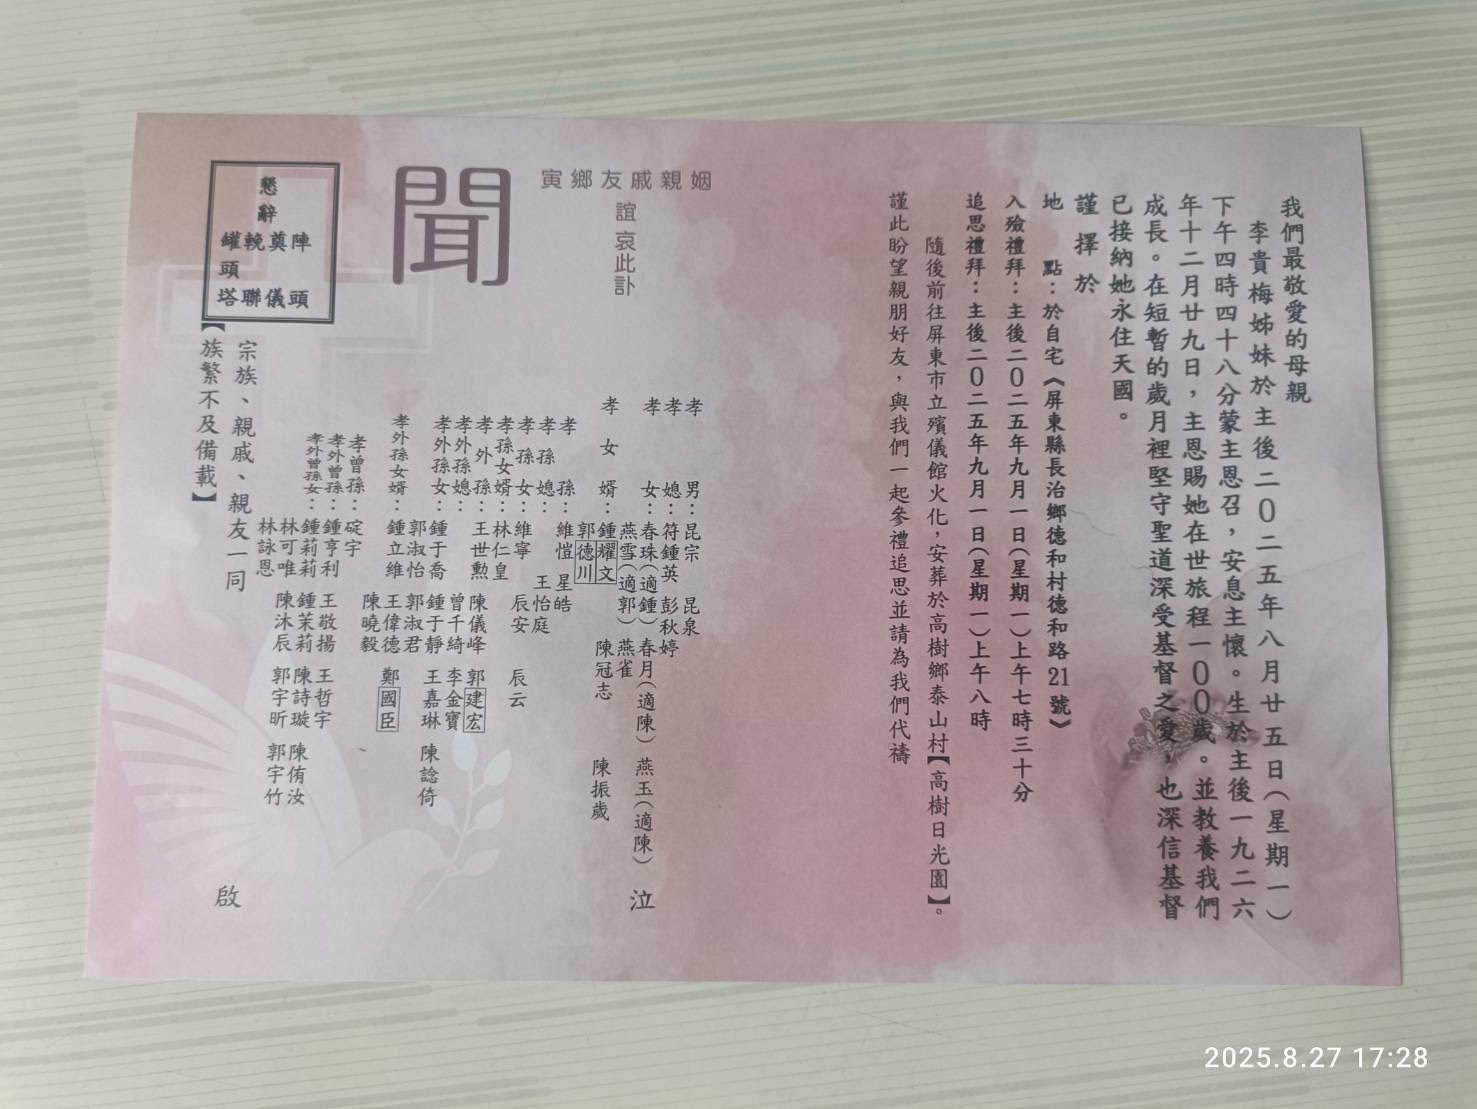 我們最敬愛的母親
李貴梅姊妹於主後二0二五年八月廿五日(星期一)
下午四時四十八分蒙主恩召，安息主懷。生於主後一九二六
年十二月廿九日，主恩賜她在世旅程一00歲。並教養我們
成長。在短暫的歲月裡堅守聖道深受基督之愛，也深信基督
已接納她永住天國。
謹擇於
地 點：於自宅《屏東縣長治鄉德和村德和路21號》
入殮禮拜：主後二0二五年九月一日(星期一)上午七時三十分
追思禮拜：主後二0二五年九月一日(星期一)上午八時
隨後前往屏東市立殯儀館火化，安葬於高樹鄉泰山村【高樹日光園】。
謹此盼望親朋好友，與我們一起參禮追思並請為我們代禱
寅鄉友戚親姻
誼 哀此訃
聞
孝男：昆宗 昆泉
孝媳：符鍾英 彭秋婷
孝女：春珠(適鍾) 春月(適陳) 燕玉(適陳)
燕雪(適郭) 燕雀
孝女婿：鍾耀文 陳冠志 陳振歲
郭德川
孝孫：維愷 星皓
孝孫媳：王怡庭
孝孫女：維寧 辰安 辰云
孝孫女婿：林仁皇
孝外孫：王世勳 陳儀峰 郭建宏
孝外孫媳：曾千綺 李金寶
孝外孫女：鍾于喬 鍾于靜 王嘉琳 陳諗倚
郭淑怡 郭淑君
孝外孫女婿：鍾立維 王偉德 鄭國臣
陳曉毅
孝曾孫：碇宇
孝外曾孫：鍾亨利 王敬揚 王哲宇
孝外曾孫女：鍾莉莉 鍾茉莉 陳詩璇 陳侑汝
林可唯 陳沐辰 郭宇昕 郭宇竹
林詠恩
泣
宗族、親戚、親友一同
【族繁不及備載】
啟
懇
辭
罐輓奠陣
頭
塔聯儀頭
2025.8.27 17:28